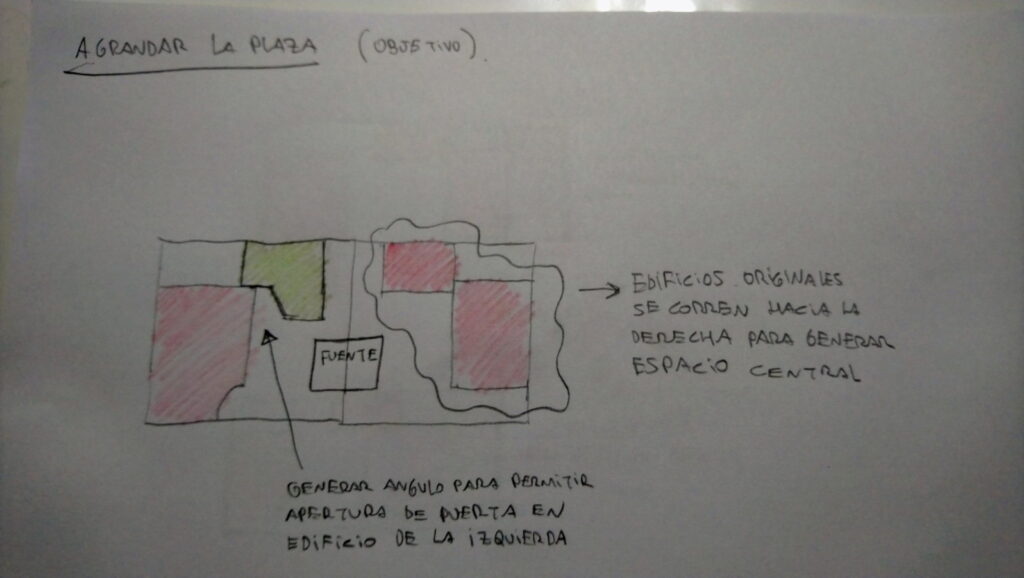 AGRANDAR LA PLAZA (OBJETIVO).
FUENTE
EDIFICIOS ORIGINALES
SE CORREN HACIA LA
DERECHA PARA GENERAR
ESPACIO CENTRAL
GENERAR ANGULO PARA PERMITIR
APERTURA DE PUERTA EN
EDIFICIO DE LA IZQUIERDA